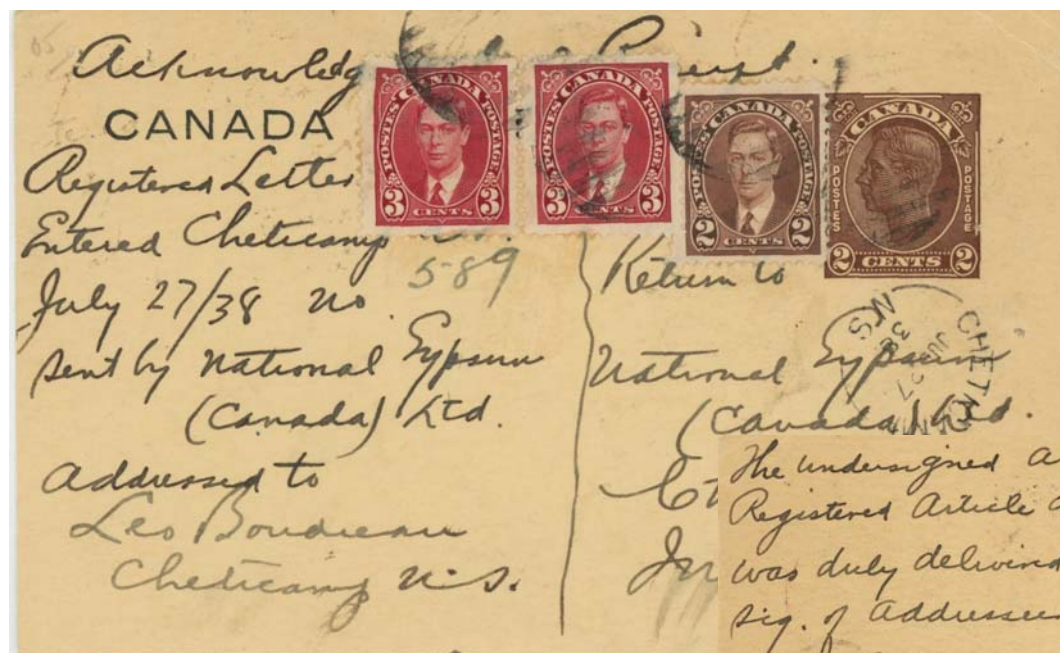 Acknowledg
CANADA
Registered Letter
Entered Cheticamp
July 27/38 no 589
sent by National Gypsum
(Canada) Ltd.
addressed to
Leo Boudreau
Cheticamp N.S.
CANADA
POSTES POSTAGE
3 CENTS 3
CANADA
POSTES POSTAGE
3 CENTS 3
CANADA
POSTES POSTAGE
2 CENTS 2
CANADA
POSTES POSTAGE
2 CENTS 2
Return to
National Gypsum
(Canada) Ltd.
CHETIC
JU 27
38
NS
The undersigned
Registered Article
was duly delivered
sig. of Addressee